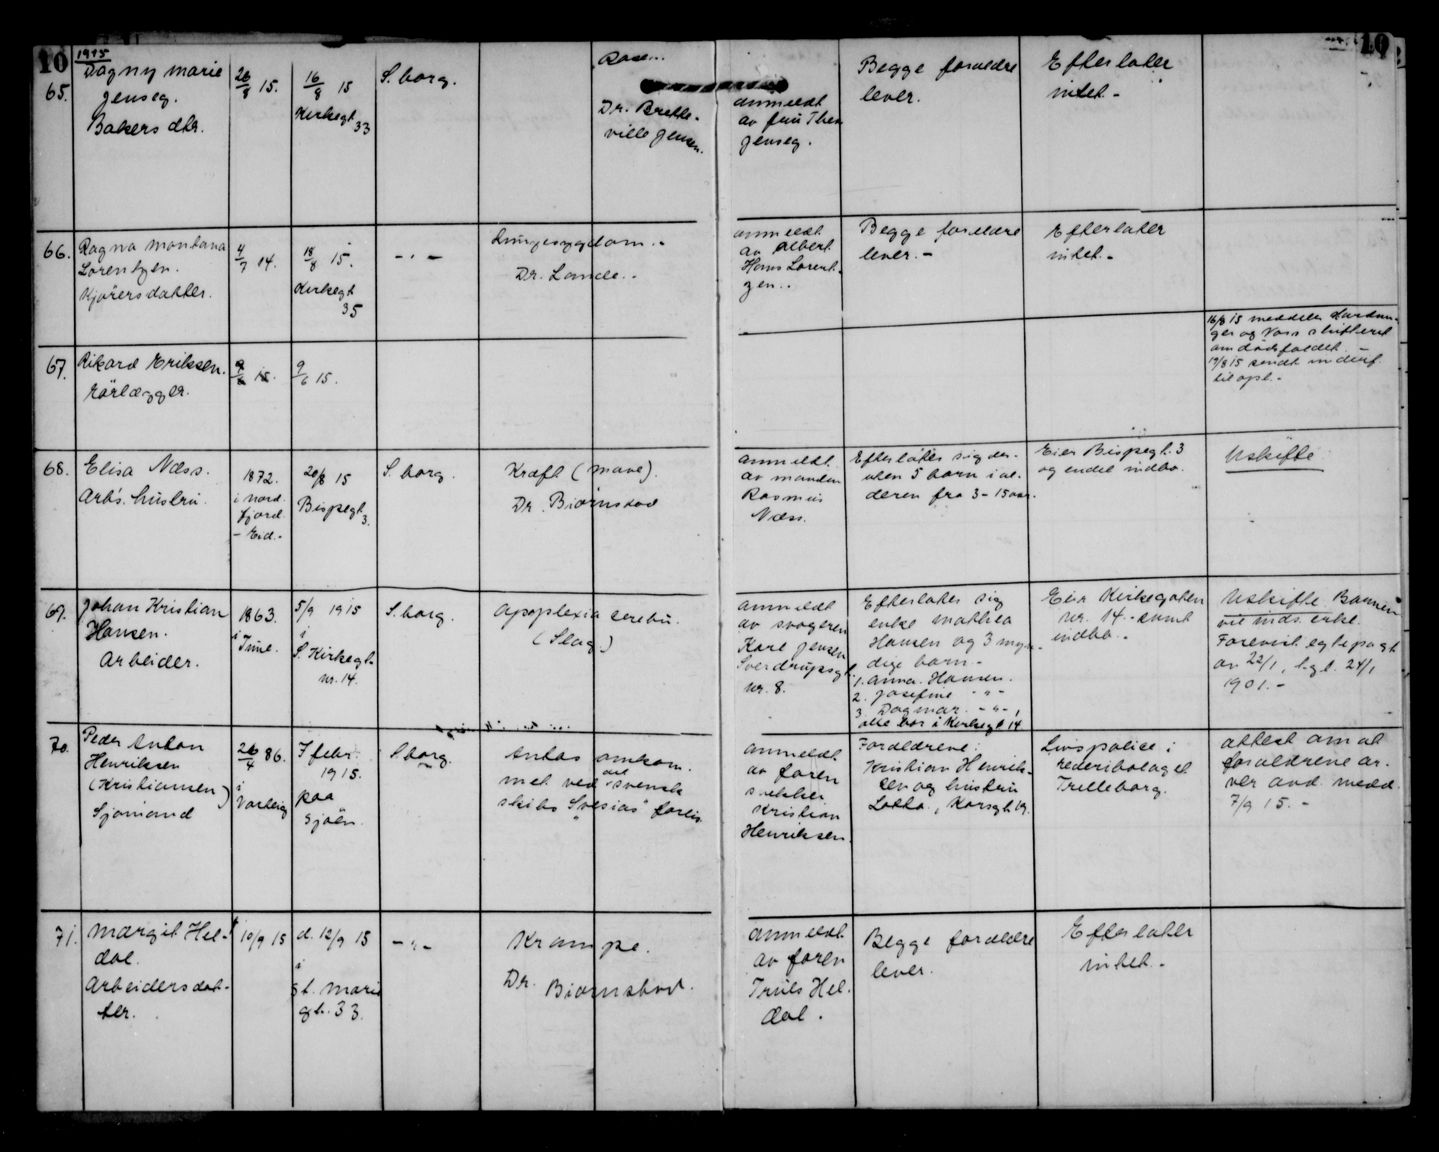 10
1915
65.
Dagny Marie
Jenseg.
Bakers dtr.
26/8 15.
16/8 15
Kirkegt.
33
S.borg.
Dr. Brette-
ville Jensen.
anmeldt
av fru Thea
Jenseg.
Begge forældre
lever.
Efterlater
intet -
10
66.
Ragna Montana
Lorentzen.
Kjørersdatter.
4/7 14.
18/8 15.
Kirkegt
35
- " -
Lungesygdom.
Dr. Lande.
anmeldt
av Albert
Hans Lorent-
zen.
Begge forældre
lever. -
Efterlater
intet. -
67.
Rikard Eriksen.
rørlægger.
15.
9/6 15.
16/8 15 meddeler Hardan-
ger og Voss skifteret
om dødsfaldet. -
68.
Elisa Næss.
Arb's. hustru.
1872.
i Nord-
fjord
- Eid. -
20/8 15
Bispegt.
3.
S.borg.
Kræft (mave).
Dr. Biørnstad
anmeldt
av manden
Rasmus
Næss.
Efterlater sig des-
uten 5 barn i al-
deren fra 3 - 15 aar.
Eier Bispegt. 3
og endel indbo.
Uskifte
69.
Johan Kristian
Hansen.
Arbeider.
1863.
i
Tune.
5/9 1915
i
S. Kirkegt.
nr. 14.
S.borg.
Apoplexia cerebri.
(Slag)
anmeldt
av svogeren
Kare Jensen
Sverdrupsgt.
nr. 8.
Efterlater sig
enke Mathea
Hansen og 3 myn-
dige barn -
1. Anna Hansen.
2. Josefine - " -
3. Dagmar - " -,
alle bor i Kirkegt 14
Eier Kirkegaten
nr. 14. - samt
indbo. -
Uskifte
Forevist egtepagt
av 22/1, tgl. 24/1
1901. -
70.
Peder Anton
Henriksen
(Kristiansen)
Sjømand
26/4 86.
i
Varteig
7 febr.
1915.
paa
sjøen.
S.borg.
Antas omkom-
met ved det svensk
skibs "Svesias" forlis
anmeldt
av faren
snekker
Kristian
Henriksen.
Forældrene:
Kristian Henrik-
sen og hustru
Lotta, Korsgt. 19.
Livspolice i
rederibolaget
Trelleborg.
attest om at
forældrene ar-
ver avd. medd.
7/9 15. -
71.
Margit Hel-
dal.
Arbeidersdat-
ter.
10/9 15
d. 12/9 15
i
St. Marie
gt. 33.
- " -
Krampe.
Dr. Biørnstad.
anmeldt
av faren
Truls Hel-
dal.
Begge forældre
lever.
Efterlater
intet. -